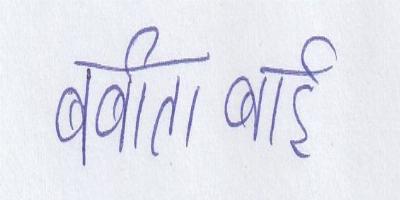 बबीता बाई